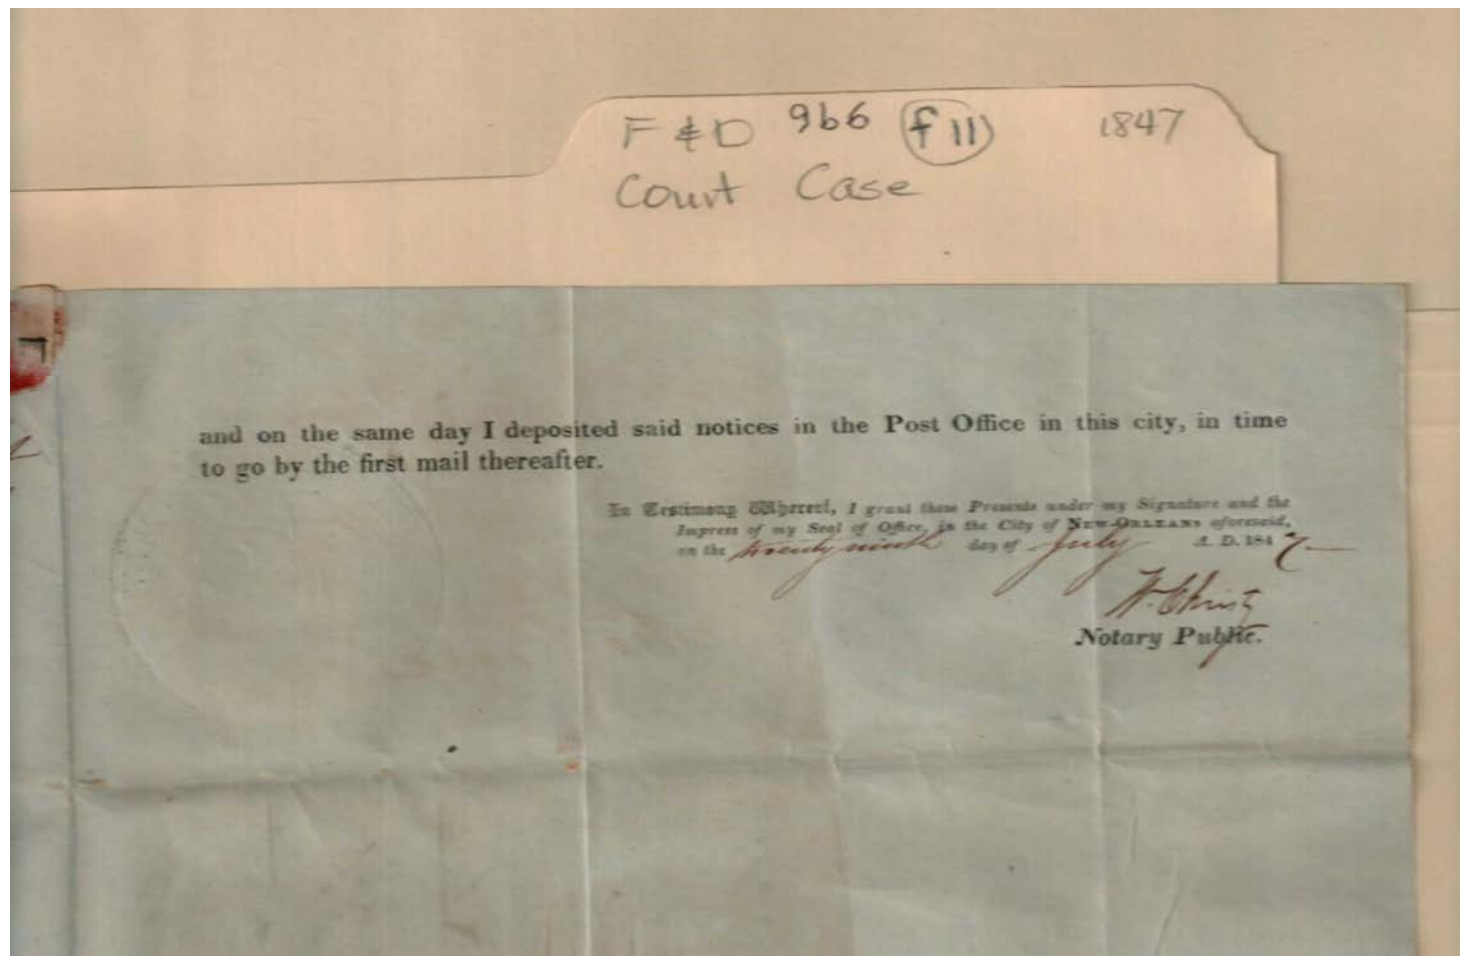 F & D 9b6 f 11 1847
Court Case
and on the same day I deposited said notices in the Post Office in this city, in time
to go by the first mail thereafter.
In Testimony Whereof, I grant these Presents under my Signature and the
Impress of my Seal of Office, in the City of NEW-ORLEANS aforesaid,
on the twenty ninth day of July A. D. 184 7
W. Christy
Notary Public.